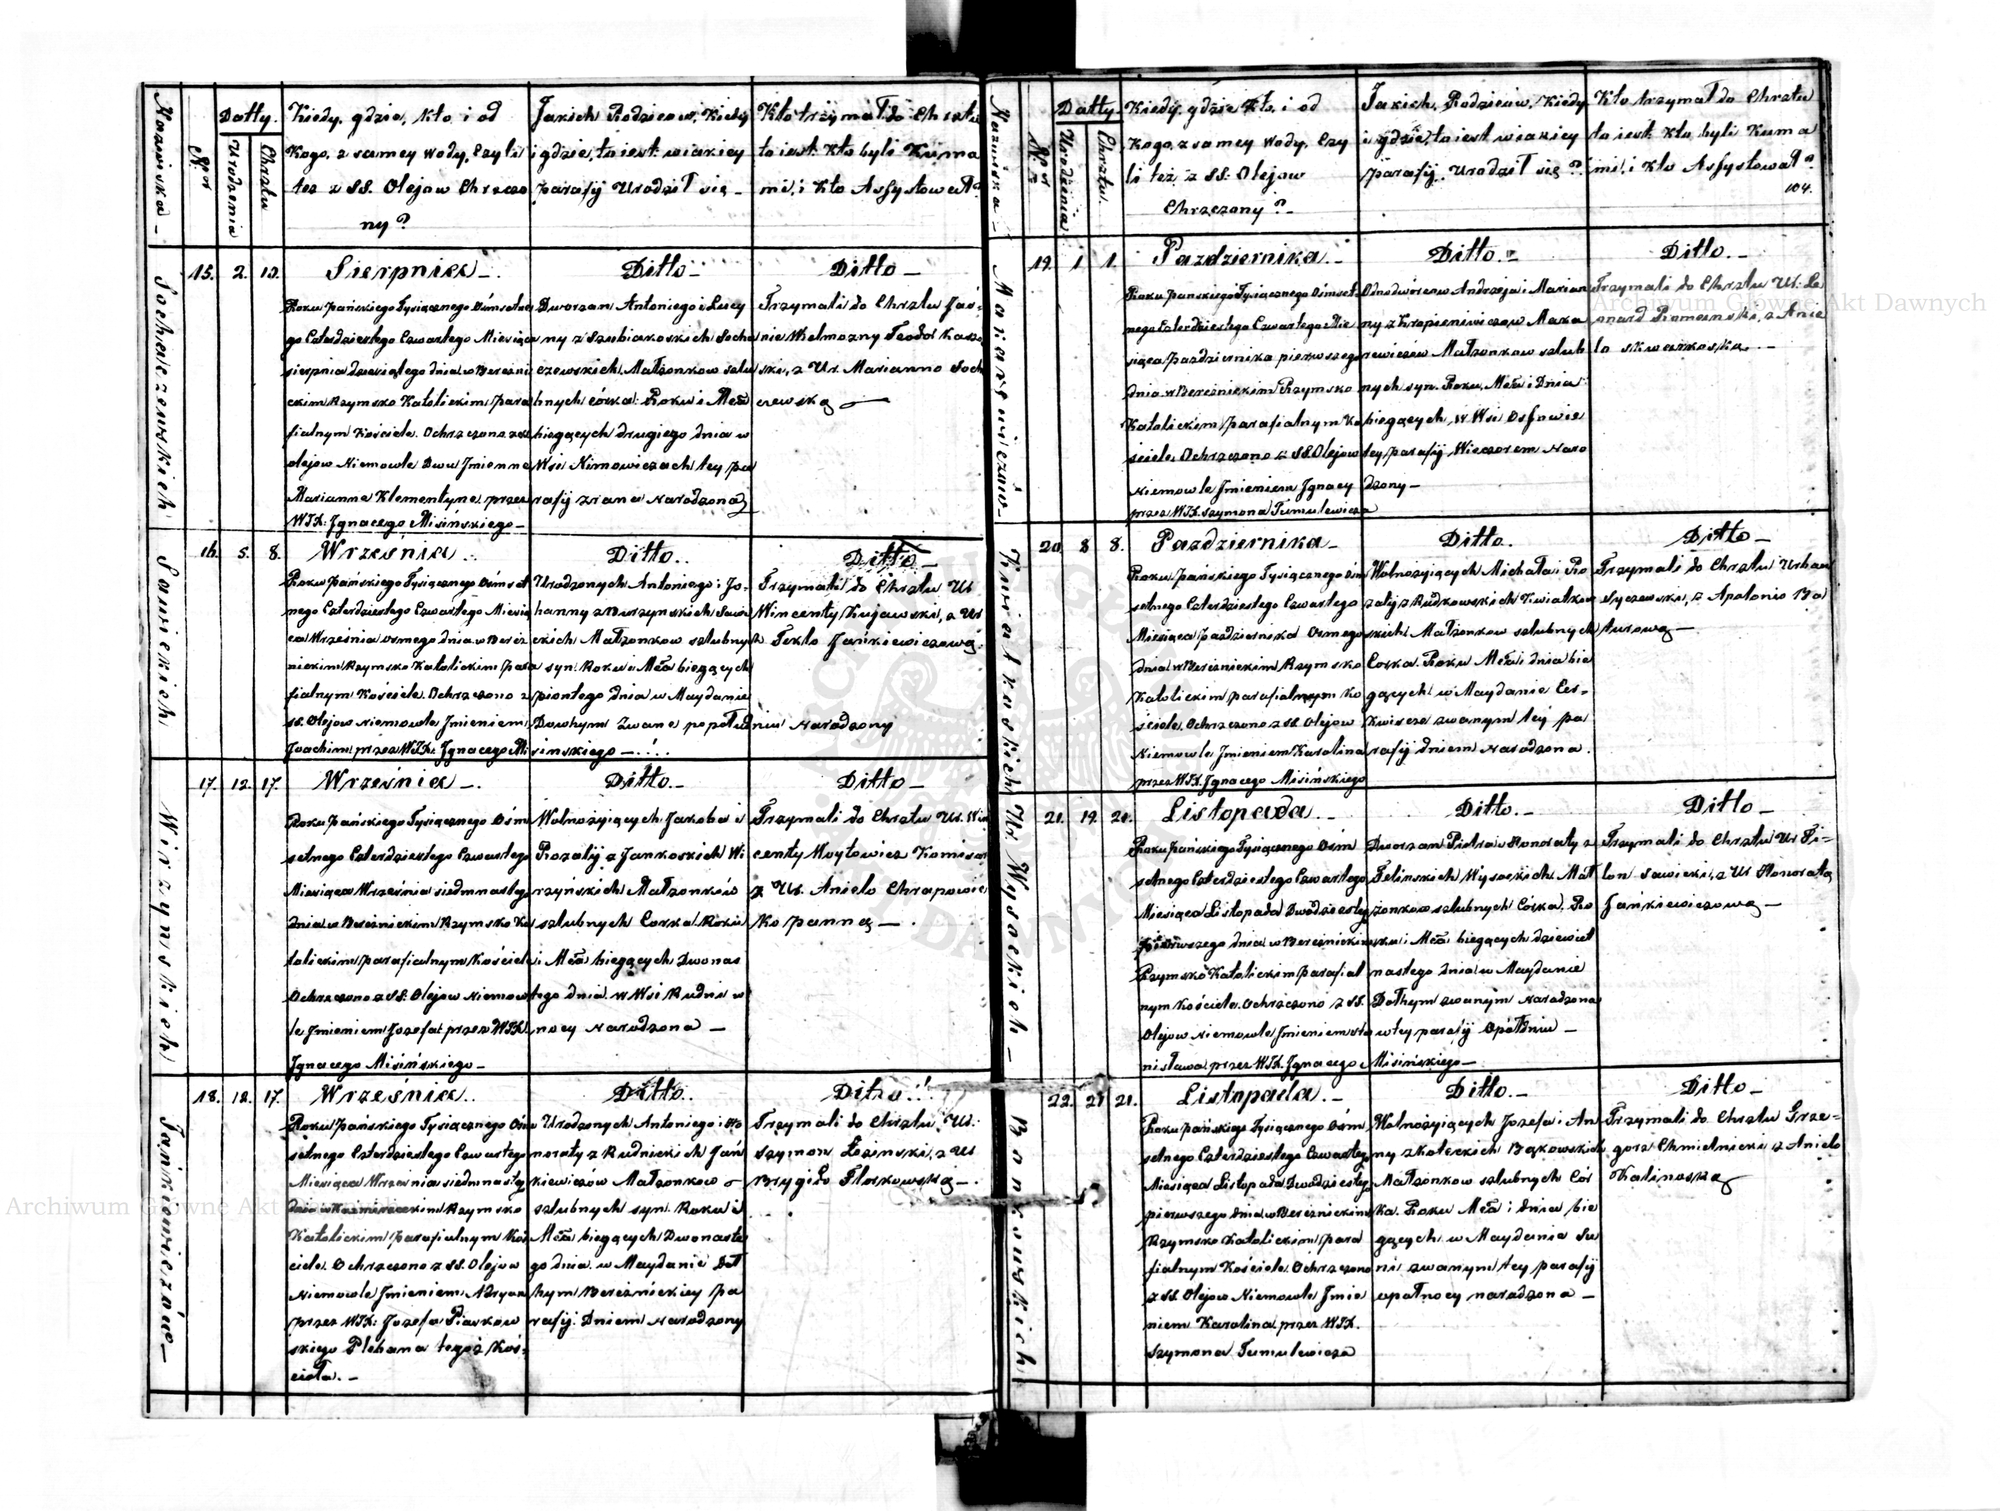 Nazwiska
Nror
Datty.
Urodzenia
Chrztu
Kiedy, gdzie, kto i od
Kogo, z samey wody, Czyli
też z SS. Olejow Chrzczo
ny?
Jakich Rodzicow, Kiedy
i gdzie, to iest w iakiey
parafij Urodził się
Kto trzymał do Chrztu
to iest Kto byli Kuma
mi, i Kto Assystował?
Sochaczewskich
15. 2. 10.
Sierpnia
Roku Pańskiego Tysiącznego Ośmsetne
go Czterdziestego Czwartego Miesiąca
sierpnia dziesiątego dnia w Bereźni
ckim Rzymsko Katolickim Para
fialnym Kościele. Ochrzczono z SS.
olejow Niemowle Dwu Jmienne
Marianna Klementyna przez
WJX: Jgnacego Misińskiego
Ditto
Dworzan Antoniego i Lucy
ny z Szubiakoskich Socha
czewskich Małżonkow szlu
bnych córka Roku i Mca
biegących drugiego dnia w
Wsi Nimowiczach tey pa
rafij z rana Narodzona
Ditto
Trzymali do Chrztu Jaś
nie Wielmożny Teodor
ski, z Ur. Marianno Soch
czewską
Sawickich
16. 5. 8.
Września
Roku Pańskiego Tysiącznego Ośmset
nego Czterdziestego Czwartego Miesią
ca Września osmego dnia w Bereź
nickim Rzymsko Katolickim Para
fialnym Kościele. Ochrzczono z
SS. Olejow Niemowle Jmieniem
Joachim przez WJX: Jgnacego Misinskiego
Ditto
Urodzonych Antoniego i Jo
hanny z Burzynskich Sawi
ckich Małżonkow szlubnych
syn. Roku i Mca biegących
piontego dnia w Maydanie
Dowhym Zwane po południu Narodzony
Ditto
Trzymali do Chrztu Ur
Wincenty Kujawski, z Ur
Teklo Jankiewiczową
Wirzynskich
17. 12. 17.
Września
Roku Pańskiego Tysiącznego Ośm
setnego Czterdziestego Czwartego
Miesiąca Września siedmnastego
dnia w Bereźnickim Rzymsko Ka
tolickim parafialnym Kościele
Ochrzczono z SS. Olejow Niemow
le Jmieniem Jozefa przez WJX.
Jgnacego Misińskiego
Ditto
Wolnożyiących Jakoba i
Rozalij z Jankoskich Wi
rzyńskich Małżonków
szlubnych Corka Roku
i Mca biegących Dwonas
tego dnia w Wsi Rudni w
nocy Narodzona
Ditto
Trzymali do Chrztu Ur. Win
centy Woytowicz Komisar
z Ur. Anielo Chrapowic
ko panną
Jankiewiczów
18. 12. 17.
Września
Roku Pańskiego Tysiącznego Ośm
setnego Czterdziestego Czwartego
Miesiąca Września siedmnastego
Rzymsko
Katolickim Parafialnym Koś
ciele. Ochrzczono z SS. Olejow
Niemowle Jmieniem Adryan
przez WJX: Jozefa
skiego Plebana tegoż Koś
cioła.
Ditto
Urodzonych Antoniego i Ho
noraty z Rudnickich Jań
kiewiczów Małżonkow
szlubnych syn. Roku i
Mca biegących Dwonaste
go dnia w Maydanie Doł
hym Bereźnickiey pa
rafij Dniem Narodzony
Ditto
Trzymali do Chrztu Ur.
Szymon Łozinski, z Ur
Brygido Florkowską
Nazwiska
Nror
Datty
Urodzenia
Chrztu
Kiedy, gdzie, kto, i od
Kogo, z samey Wody, Czy
li też z SS: Olejow
Chrzczony?
Jakich Rodzicow, Kiedy
i gdzie, to iest w iakiey
parafij Urodził się?
Kto trzymał do Chrztu
to iest Kto byli Kuma
mi, i Kto Assystował?
104.
19. 1 1.
Pazdziernika
Roku Panskiego Tysiącznego Ośmset
nego Czterdziestego Czwartego Mie
siąca Pazdziernika pierwszego
dnia w Bereźnickim Rzymsko
Katolickim Parafialnym Ko
ściele. Ochrzczono z SS. Olejow
Niemowle Jmieniem Jgnacy
przez WJX. Szymona Tumulewicza
Ditto
Odnodworcow Andrzeja i Marian
ny z Maka
rewiczow Małżonkow szlub
nych syn. Roku, Mca i Dnia
biegących, w Wsi
tey parafij Wieczorem Naro
dzony
Ditto
Trzymali do Chrztu Ur. Le
onard Romanski, z Anie
lo
Kwiatkoskich
20. 8 8.
Pazdziernika
Roku Pańskiego Tysiącznego Ośm
setnego Czterdziestego Czwartego
Miesiąca Pazdziernika Osmego
dnia w Bereźnickim Rzymsko
Katolickim parafialnym Ko
ściele. Ochrzczono z SS. Olejow
Niemowle Jmieniem Karolina
przez WJX. Jgnacego Misińskiego
Ditto
Wolnożyiących Michała i Ro
zalij z Rudkowskich Kwiatkow
skich Małżonkow szlubnych
Corka. Roku Mca i dnia bie
gących w Maydanie
zwanym tey pa
rafij dniem Narodzona
Ditto
Trzymali do Chrztu Urban
z Apolonio
Wysockich
21. 19. 21.
Listopada
Roku Pańskiego Tysiącznego Ośm
setnego Czterdziestego Czwartego
Miesiąca Listopada Dwódziestego
Pierwszego dnia w Bereźnickim
Rzymsko Katolickim Parafial
nym Kościele. Ochrzczono z SS.
Olejow Niemowle Jmieniem Sta
nisława przez WJX. Jgnacego Misińskiego
Ditto
Dworzan Piotra i Honoraty z
Felinskich Wysockich Mał
żonkow szlubnych Córka. Ro
ku i Mca biegących dziewięt
nastego dnia w Maydanie
Dołhym zwanym Narodzona
w tey parafij opółdniu
Ditto
Trzymali do Chrztu Ur Fi
lon Sawicki, z Ur Honorato
Jańkiewiczową
Bonkowskich
22. 21 21.
Listopada
Roku pańskiego Tysiącznego Ośm
setnego Czterdziestego Czwartego
Miesiąca Listopada Dwodziestego
pierwszego dnia w Bereźnickim
Rzymsko Katolickim para
fialnym Kościele. Ochrzczono
z SS. Olejow Niemowle Jmie
niem Karolina przez WJX.
Szymona Tumulewicza
Ditto
Wolnożyiących Jozefa i An
ny z Koteckich Bąkowskich
Małżonkow szlubnych Cor
ka. Roku Mca i dnia bie
gących w Maydanie Su
ni zwanym tey parafij
opołnocy narodzona
Ditto
Trzymali do Chrztu Grze
gorz Chmielnicki z Anielo
Kalinoską
Archiwum Główne Akt Dawnych
Archiwum Główne Akt Dawnych